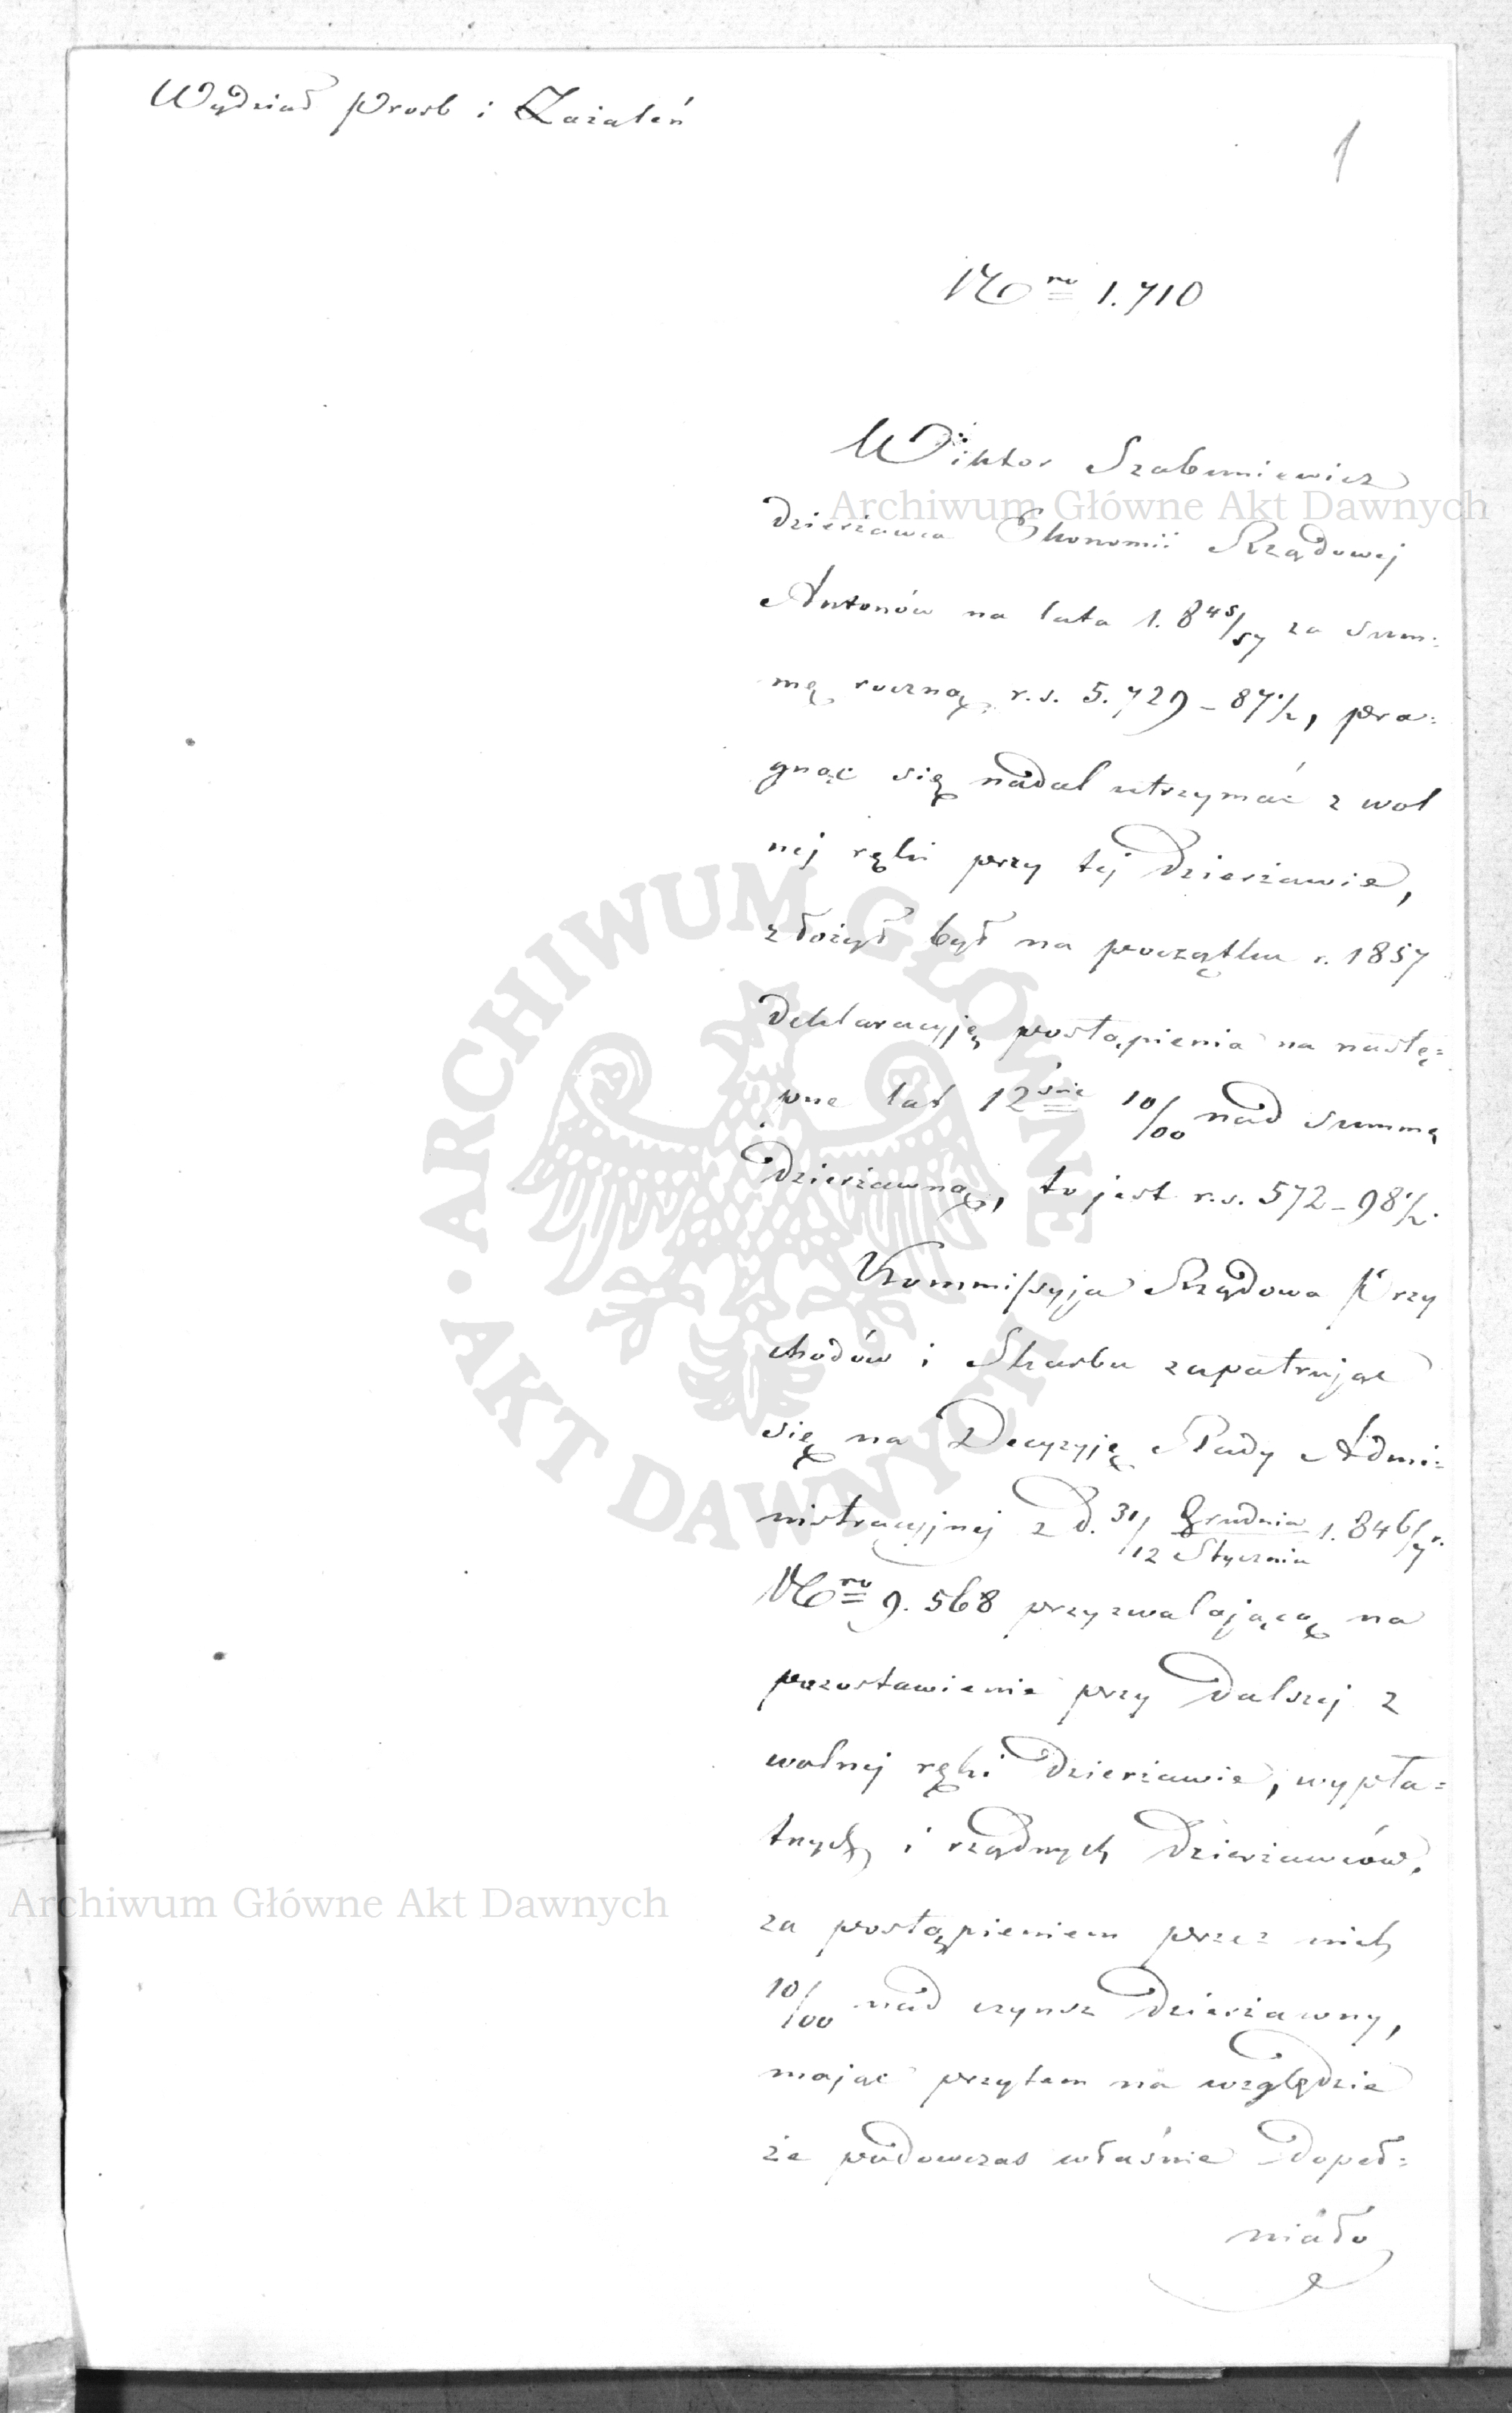 Wydział Prosb i Zażaleń
1
Nro 1.710
Wiktor Szabuniewicz
Archiwum Główne Akt Dawnych
dzierżawca Ekonomii Rządowej
Antonów na lata 1.845/57 za sum:
mę roczną, r.s. 5.729-87½, pra:
gnąc się nadal utrzymać z wol
nej ręki przy tej dzierżawie,
złożył był na początku r. 1857
deklaracyję postąpienia na nastę=
pne lat 12ście 10/00 nad summę
dzierżawną, to jest r.s. 572-98½.
Kommissyja Rządowa Przy
chodów i Skarbu zapatrując
się na Decyzyję Rady Admi:
nistracyjnej z d. 31/12 Grudnia/Stycznia 1.846/7 r.
Nro 9.568 przyzwalającą na
pozostawienie przy dalszej z
wolnej ręki dzierżawie, wypła=
tnych i rządnych dzierżawców,
Archiwum Główne Akt Dawnych
za postąpieniem przez nich
10/100 nad czynsz dzierżawny,
mając przytem na względzie
że podowczas właśnie dopeł=
niało
ARCHIWUM GŁÓWNE AKT DAWNYCH